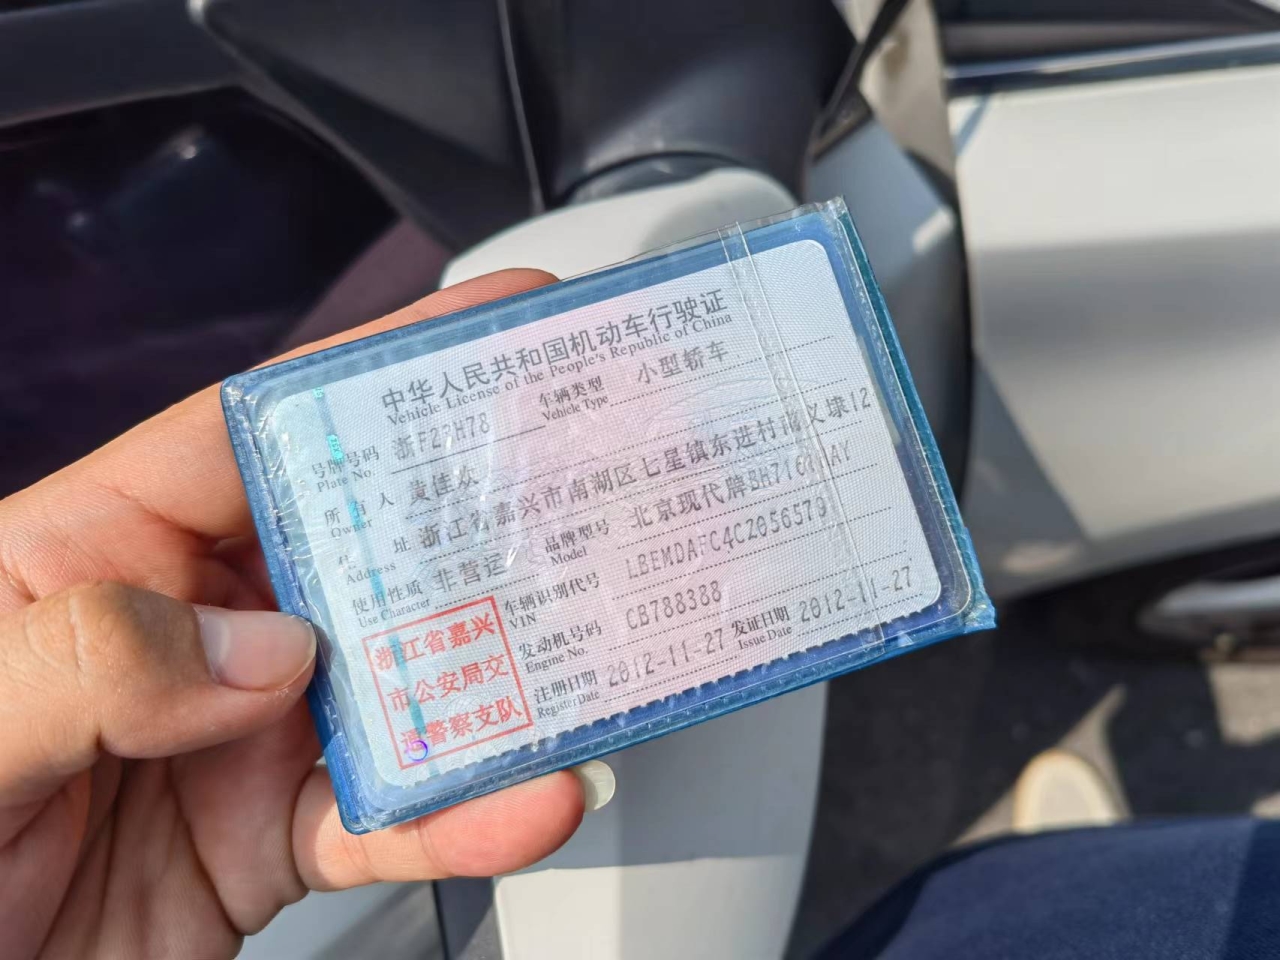 中华人民共和国机动车行驶证
Vehicle License of the People's Republic of China
号牌号码 浙F23H78 车辆类型 小型轿车
Plate No. Vehicle Type
所有人 黄佳欢
Owner
住址 浙江省嘉兴市南湖区七星镇东进村南义埭12
Address
使用性质 非营运 品牌型号 北京现代牌
Use Character Model
车辆识别代号
VIN
发动机号码 CB788388
Engine No.
注册日期 2012-11-27 发证日期 2012-11-27
Register Date Issue Date
浙江省嘉兴
市公安局交
通警察支队